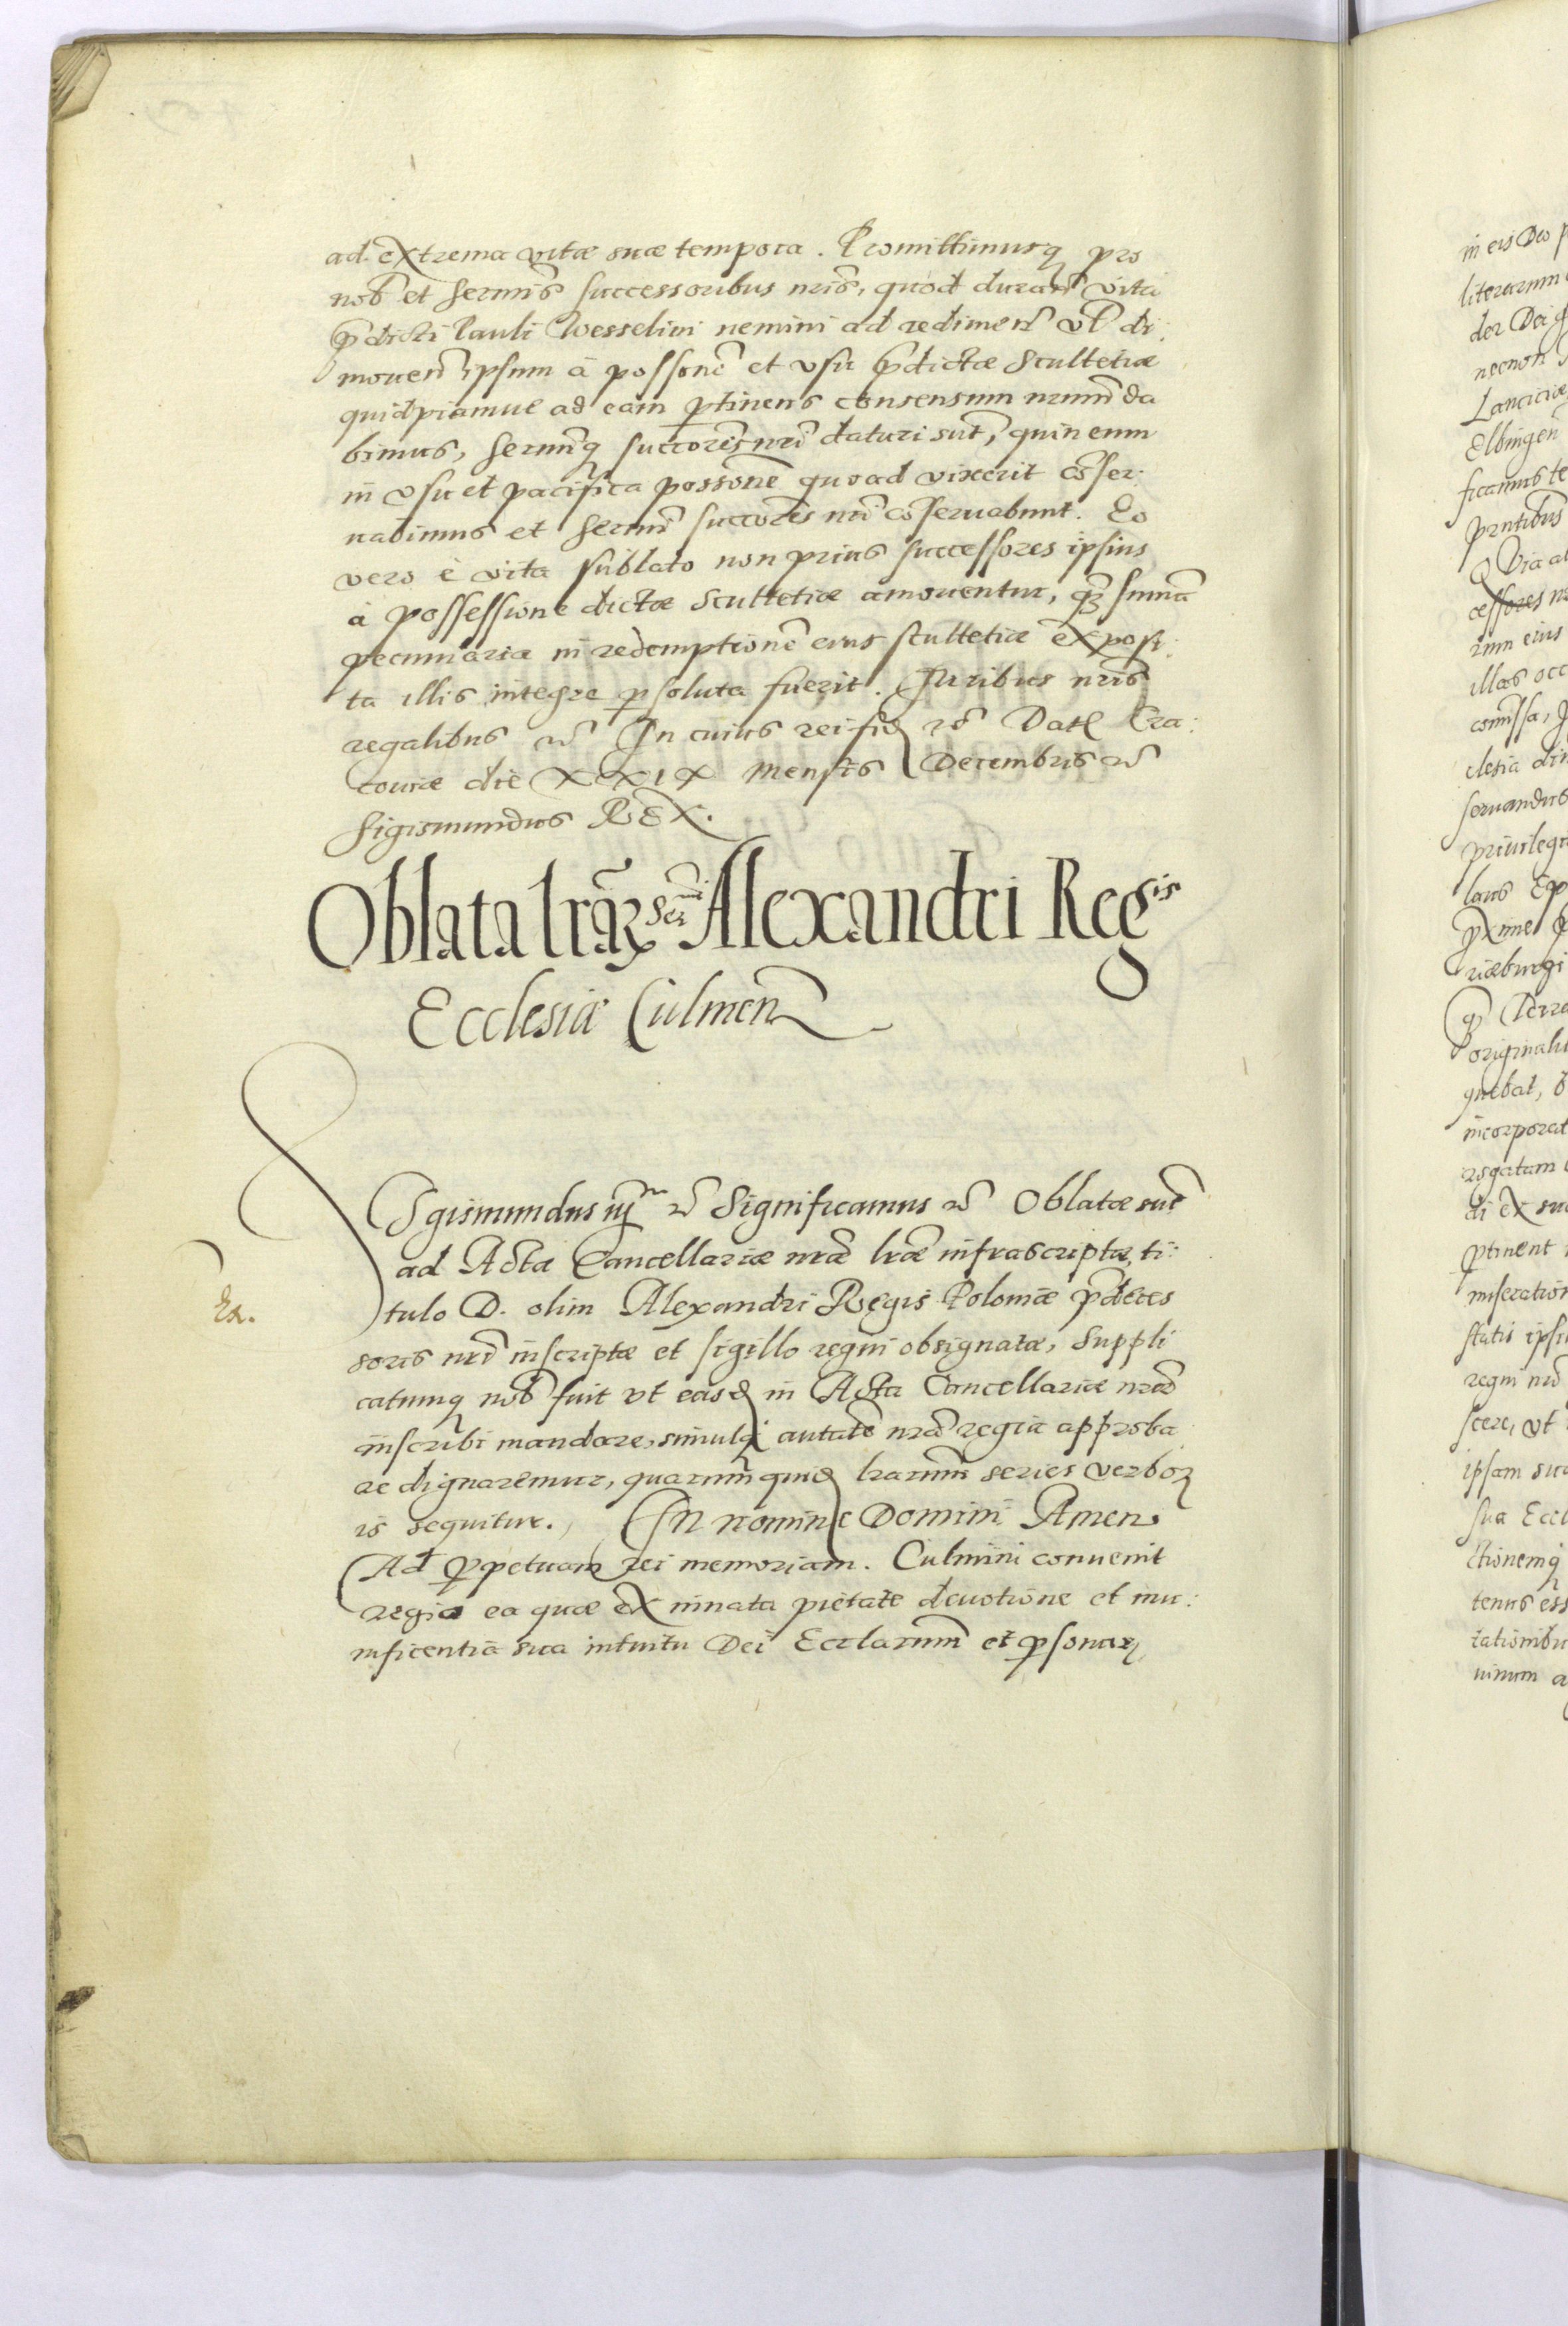 ad extrema vitæ suæ tempora. Promittimusq pro
nob et sermis successoribus nris, quod duran vita
pdicti Pauli Wesselini nemini ad redimen vl di:
mouen ipsum à possone et vsu pdictæ Scultetiæ
quidpiamue ad eam ptinens consensum nrum da
bimus, sermiq succores nri daturi sut, quin eum
in vsu et pacifica possone quoad vixerit coser:
uabimus et sermi succores nri coseruabunt. Eo
vero è vita sublato non prius successores ipsius
à possessione dictæ Scultetiæ amouentur, qz suma
pecuniaria in redemptione eius scultetiæ exposi:
ta illis integre psoluta fuerit. Juribus nris
regalibus etc In cuius rei fid etc Dat Cra:
couiæ die XXIX Mensis Decembris etc
Sigismundus REX.
Oblata lraz Sermi Alexandri Regis
Ecclesiæ Culmen
Sgismundus iij etc Significamus etc Oblatæ sut
ad Acta Cancellariæ nræ lræ infrascriptæ, ti:
tulo D. olim Alexandri Regis Poloniæ pdeces
soris nri inscriptæ et sigillo regni obsignatæ, Suppli
catumq nob fuit vt easd in Acta Cancellariæ nræ
inscribi mandare, simulq autate nra regia approba
re dignaremur, quarum quid lrarum series verbor
is sequitur. In nomine Domini Amen
Ad ppetuam rei memoriam. Culmini conuenit
regio ea quæ ex innata pietate deuotione et mu:
nificentia sua intuitu Dei Ecclarum et psonar
Ex.
in eis Deo
der Dei
necnon
Elbingen
illas occ
comissa,
clesia
seruandus
priuilegi
Terra
originali
quebat,
incorporat
ptinent
miseration
statis ipsi
regni nri
scere, vt
ipsam sua
sua Eccl
ctionemq
tenus ess
tationibu